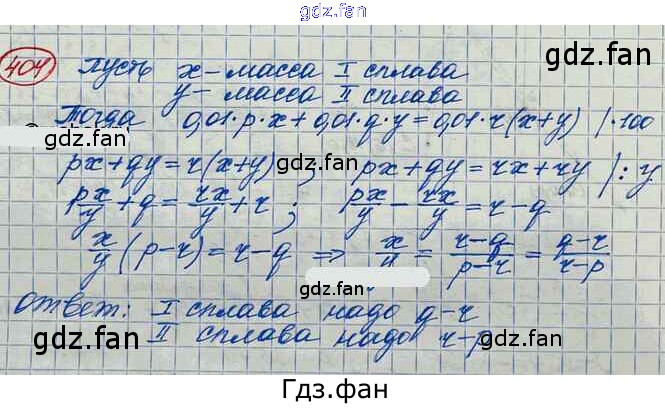 gdz.fan
404 Пусть x - масса I сплава
gdz.fan
y - масса II сплава
Тогда 0,01·p·x+0,01·q·y=0,01·r(x+y) |·100
gdz.fan
px+qy=r(x+y) ; px+qy=rx+ry |:y
gdz.fan
px/y+q=rx/y+r ; px/y-rx/y=r-q
x/y(p-r)=r-q ⇒ x/y=(r-q)/(p-r)=(q-r)/(r-p)
gdz.fan
Ответ: I сплава надо q-r
gdz.fan
II сплава надо r-p
gdz.fan
Гдз.фан